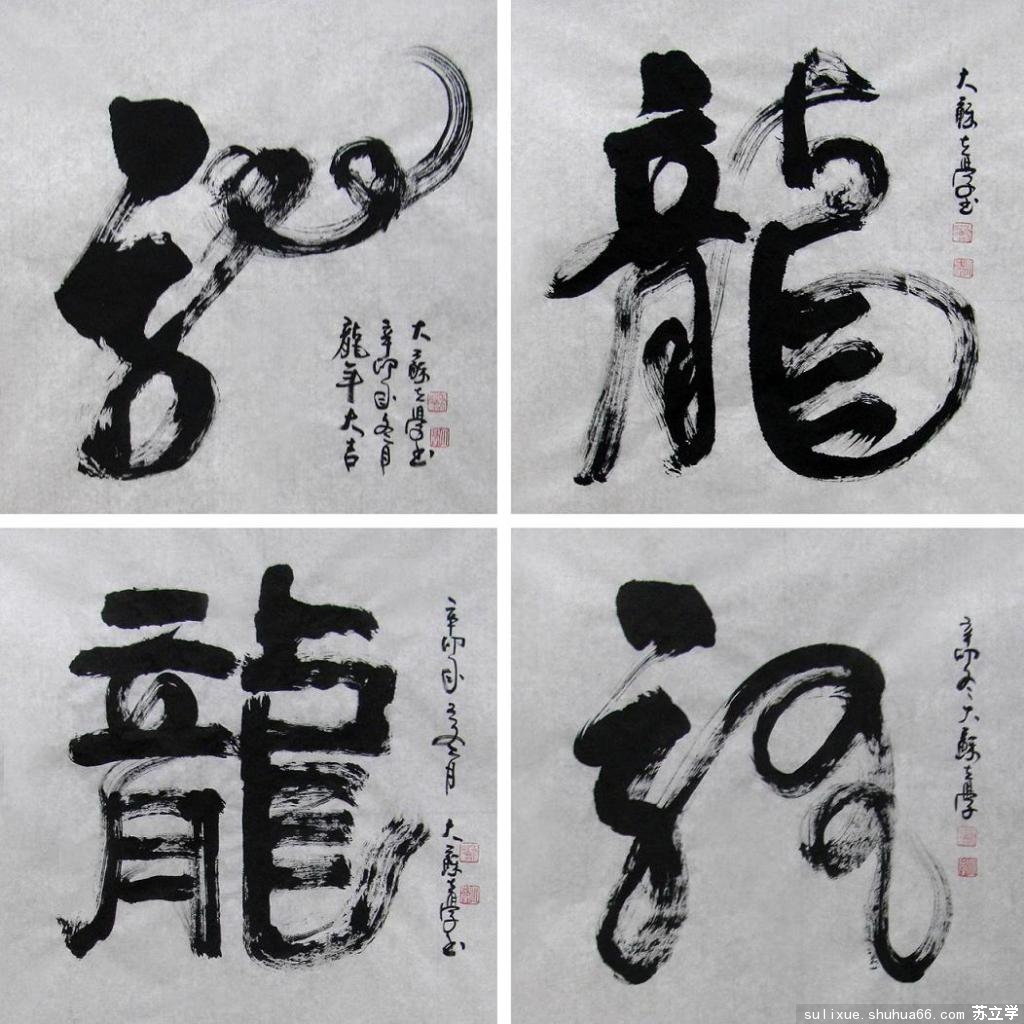 龍
龍年大吉
辛卯年冬月
大蘇立學书
龍
大蘇立學书
龍
辛卯年冬月
大蘇立學书
龍
辛卯冬大蘇立學
sulixue.shuhua66.com 苏立学